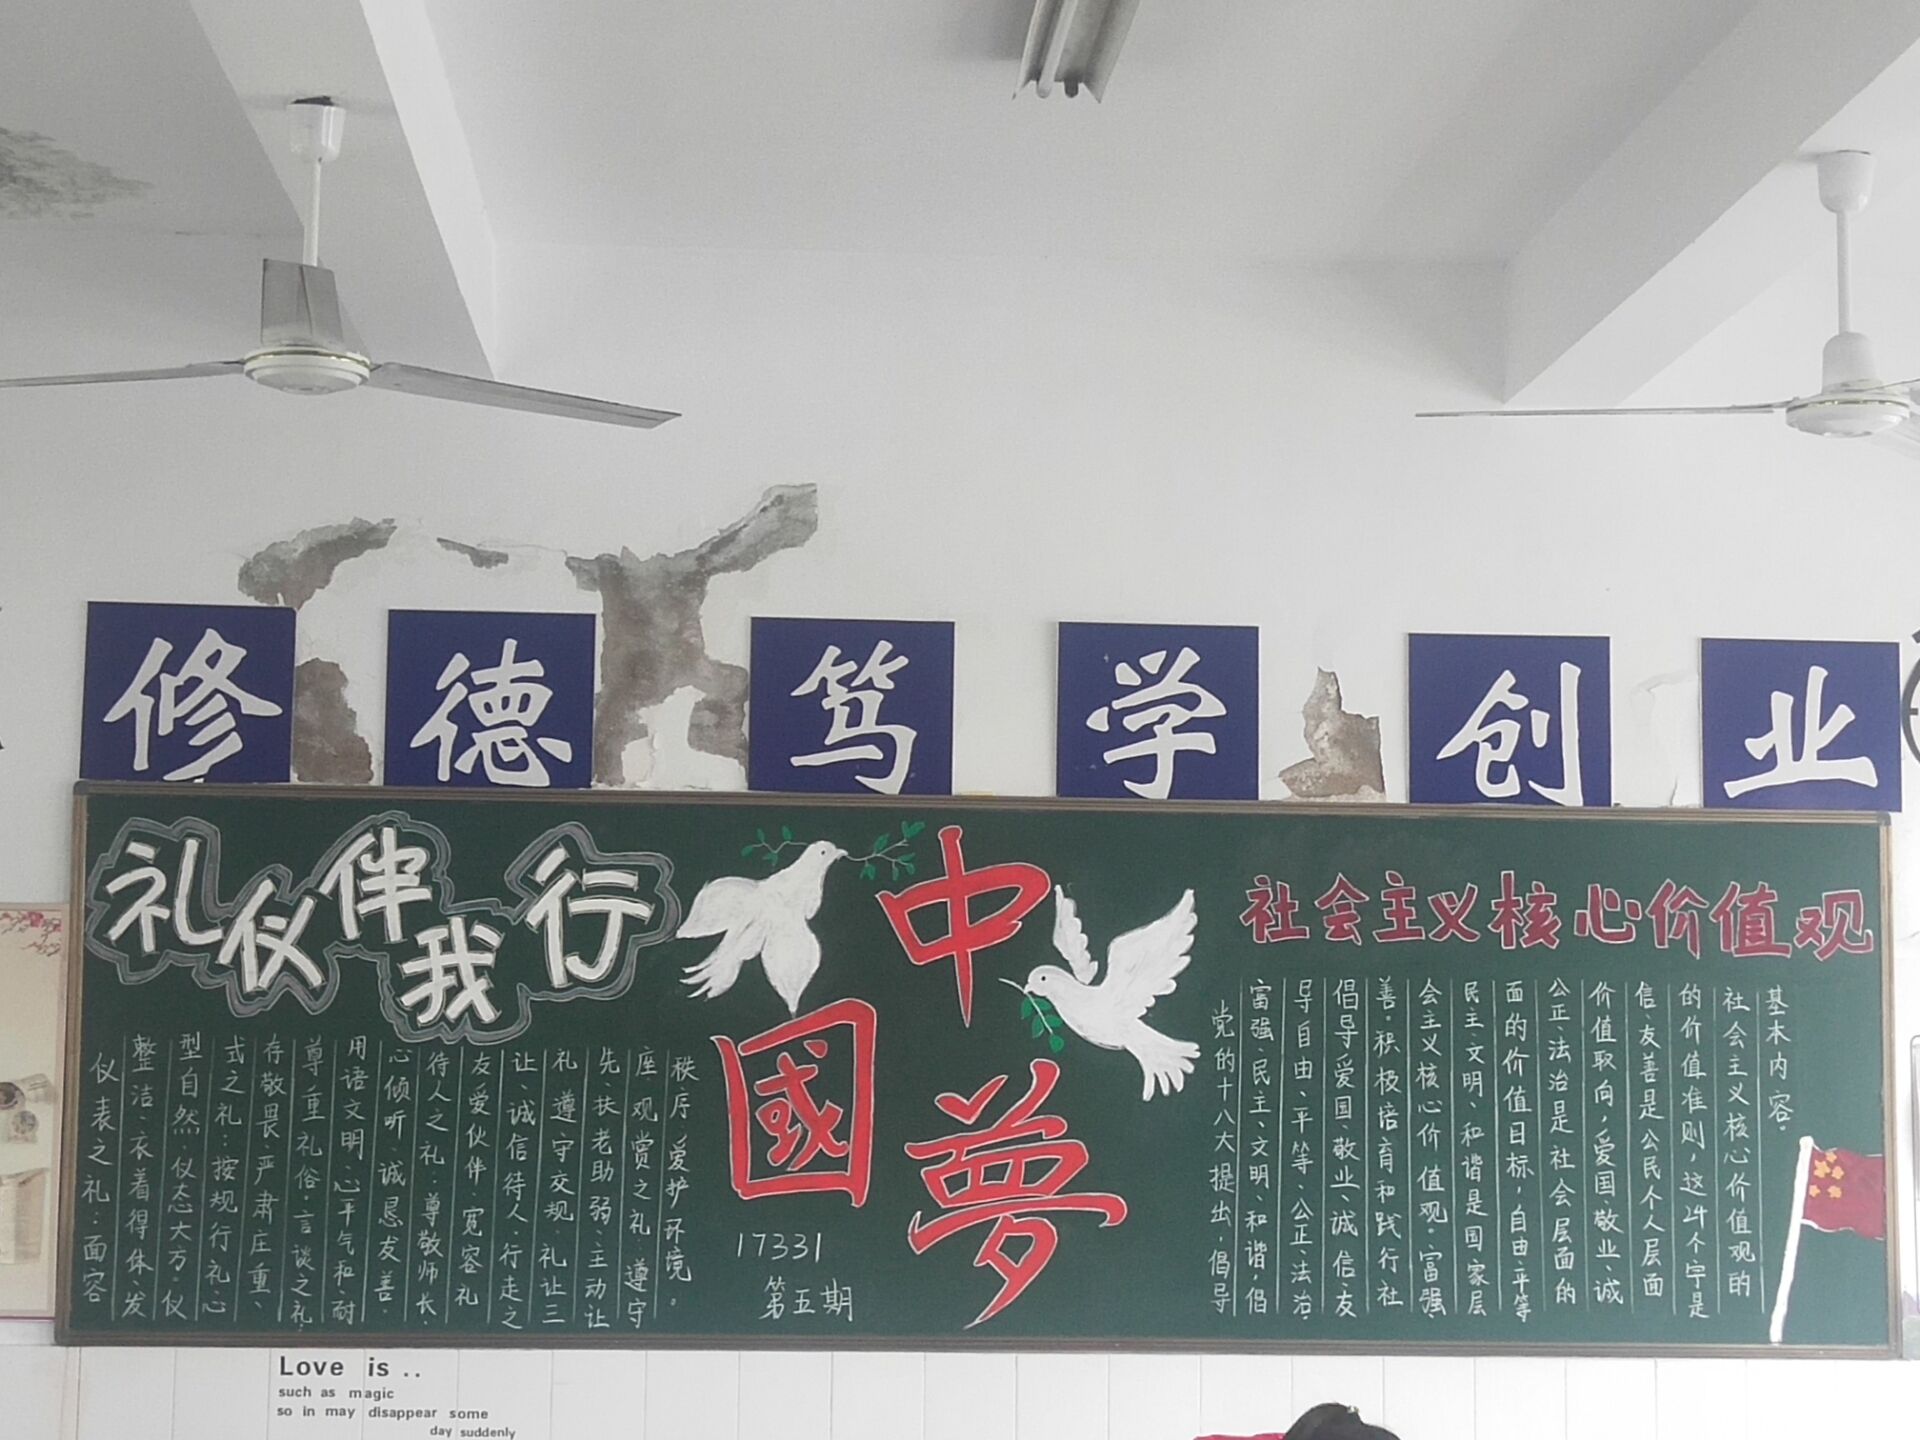 修德笃学创业
礼仪伴我行
仪表之礼:面容
整洁、衣着得体、发
型自然、仪态大方。仪
式之礼:按规行礼、心
存敬畏、严肃庄重、
尊重礼俗。言谈之礼:
用语文明、心平气和、耐
心倾听、诚恳友善。
待人之礼:尊敬师长、
友爱伙伴、宽容礼
让、诚信待人。行走之
礼:遵守交规、礼让三
先、扶老助弱、主动让
座。观赏之礼:遵守
秩序、爱护环境。
中
國
夢
17331
第五期
社会主义核心价值观
党的十八大提出,倡导
富强、民主、文明、和谐,倡
导自由、平等、公正、法治,
倡导爱国、敬业、诚信、友
善。积极培育和践行社
会主义核心价值观。富强、
民主、文明、和谐是国家层
面的价值目标,自由、平等
公正、法治是社会层面的
价值取向,爱国、敬业、诚
信、友善是公民个人层面
的价值准则,这24个字是
社会主义核心价值观的
基本内容。
Love is ..
such as magic
so in may disappear some
day suddenly